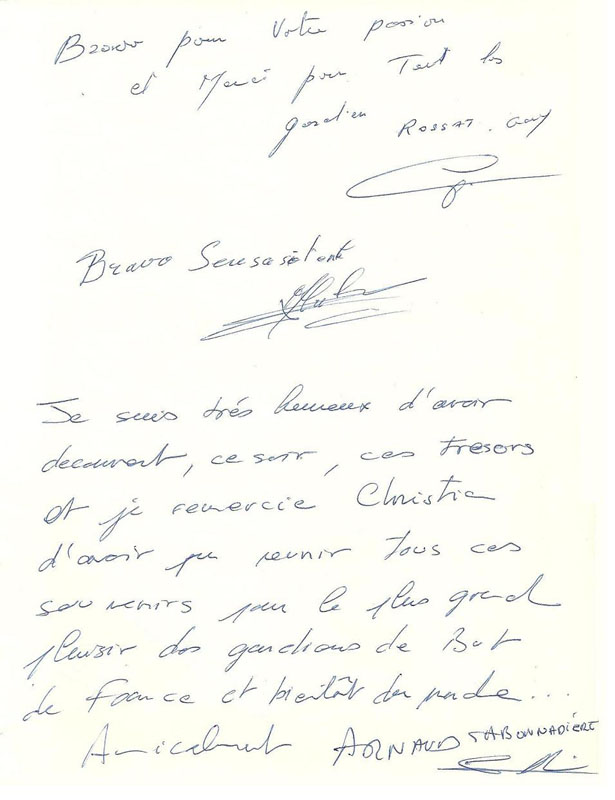 Bravo pour Votre passion
et Merci pour Tout les
gardien ROSSAT. Guy
Bravo Sensas
Je suis très heureux d'avoir
decouvert, ce soir, ces tresors
et je remercie Christia
d'avoir pu reunir tous ces
souvenirs pour le plus grand
plaisir des gardiens de But
de France et bientôt du monde...
Amicalement ARNAUD TABONNADIÈRE